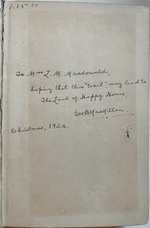 To Mrs L. M. Macdonald,
hoping that this "trail" may lead to
The Land of Happy Hours,
Christmas, 1924.